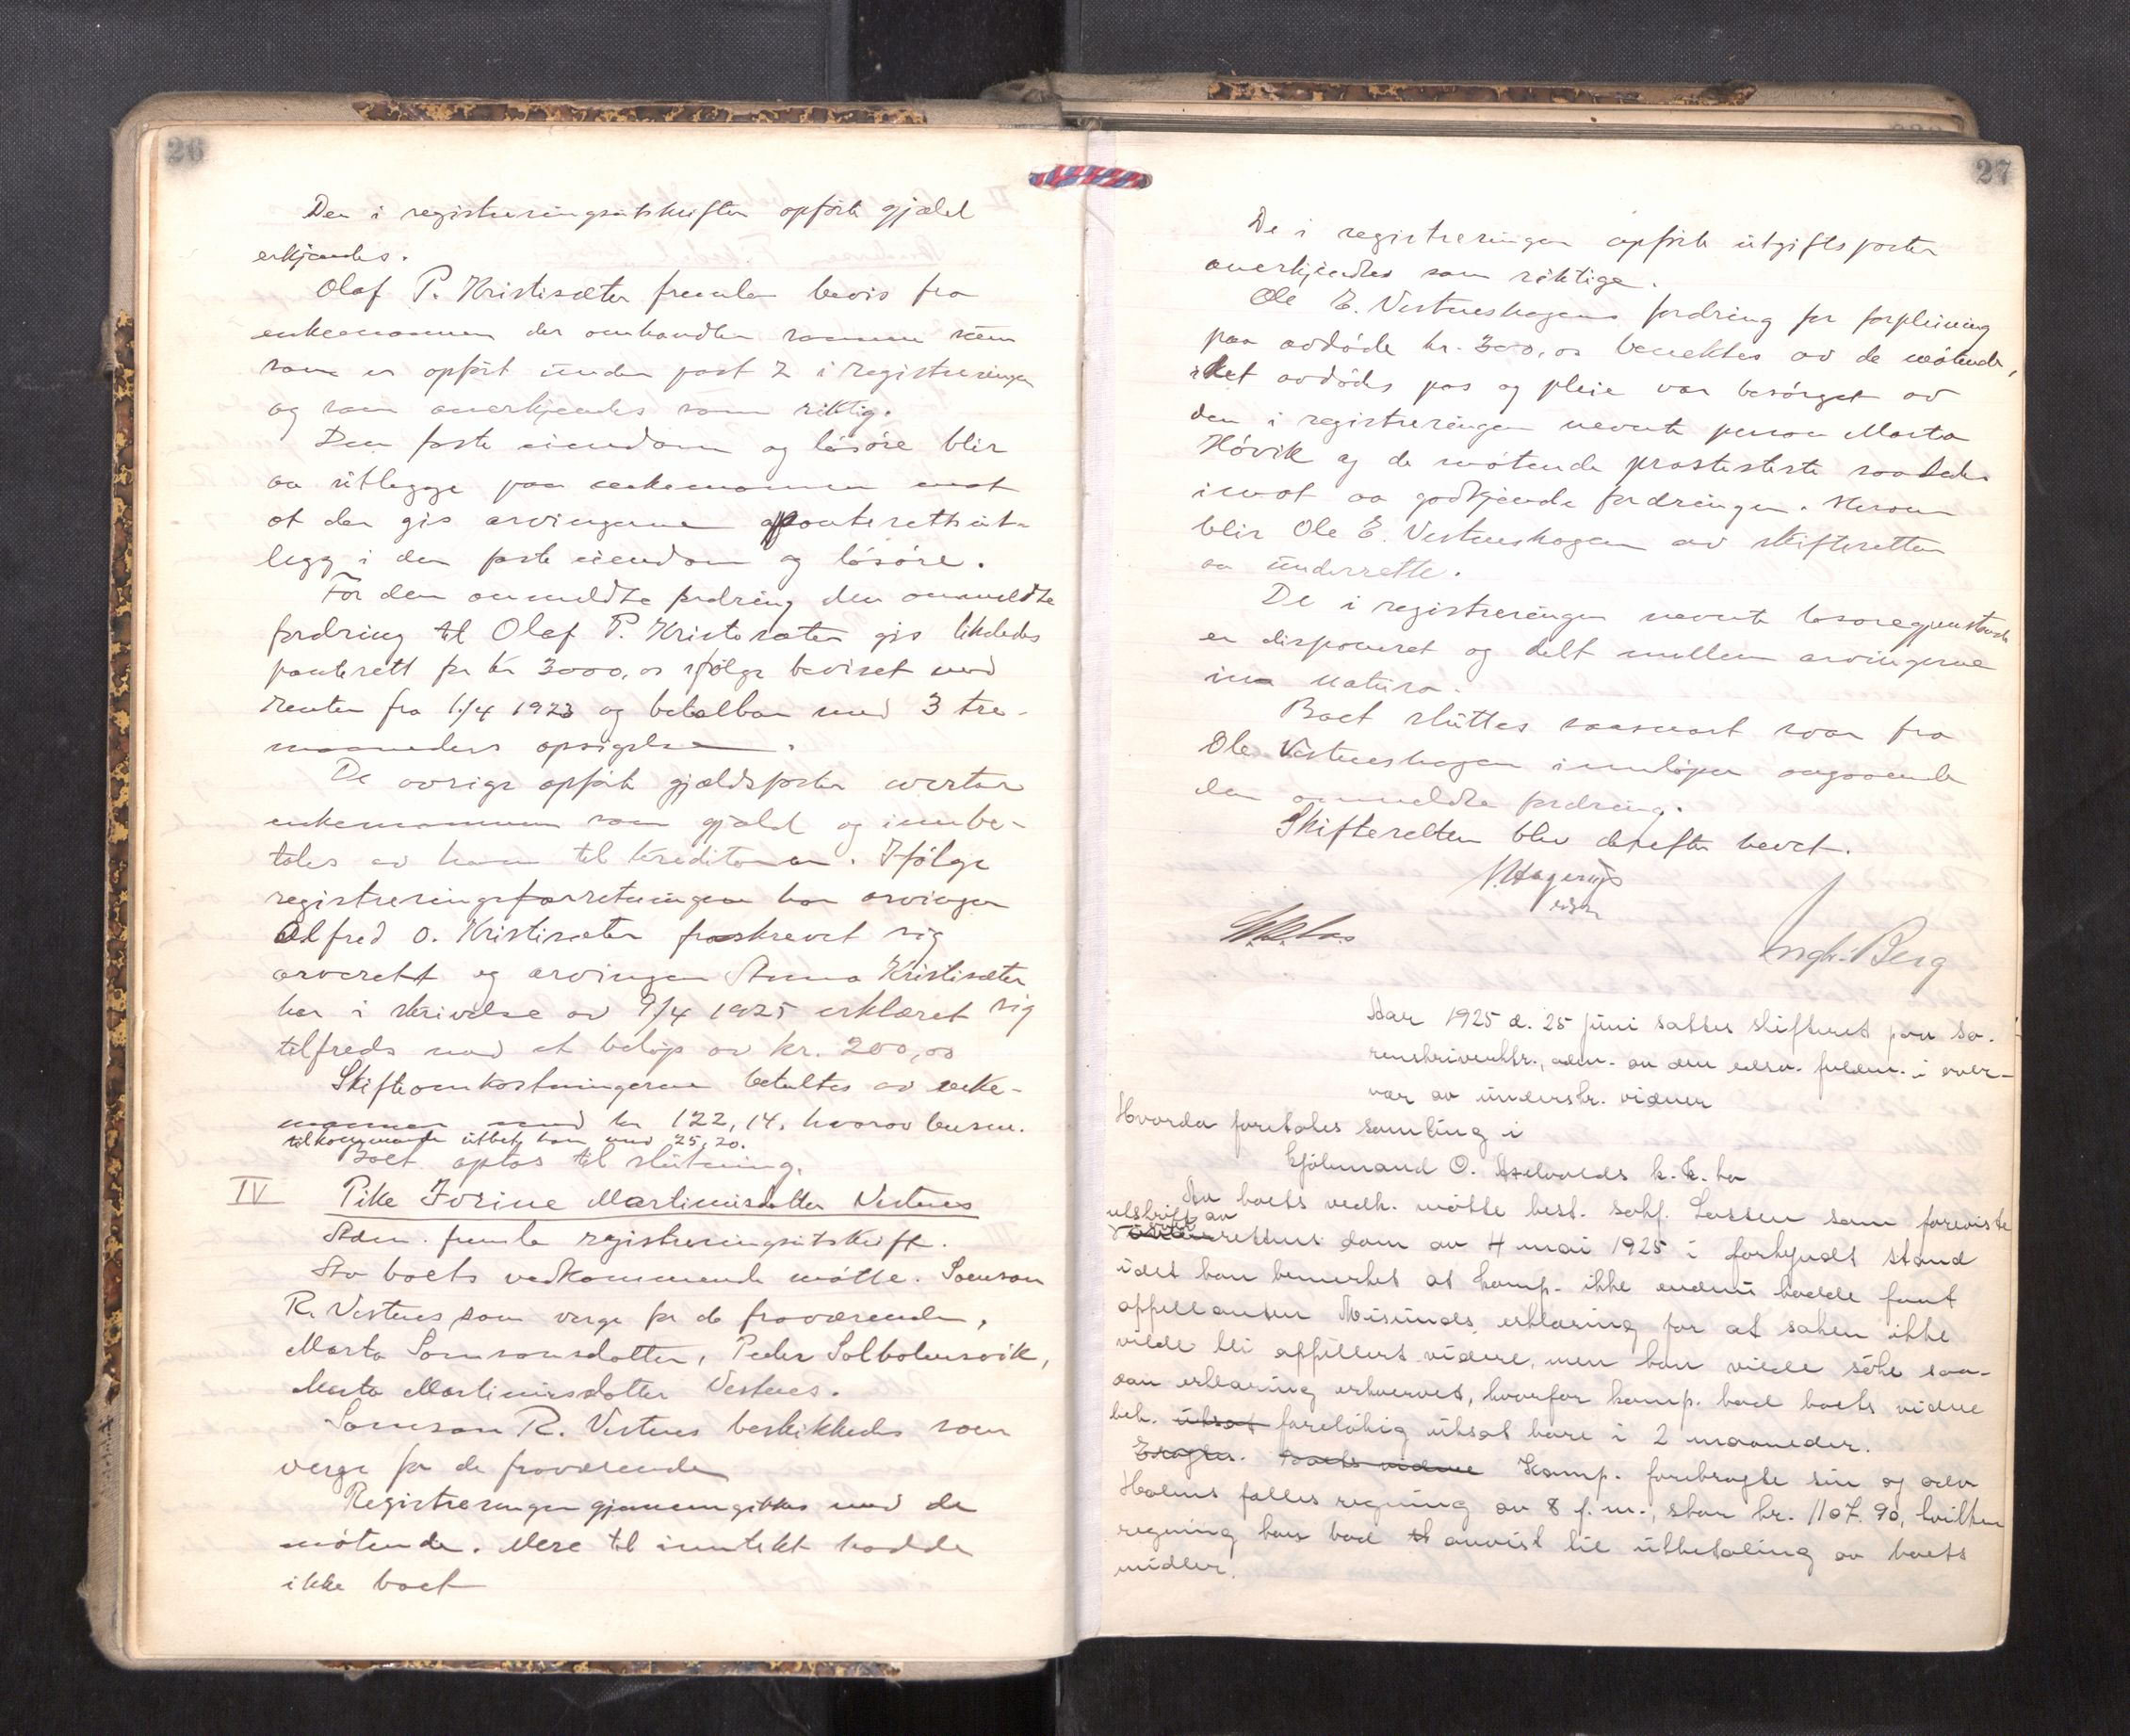 26
Den i registreringsutskriften opførte gjæld
erkjendes.
Olaf P. Kristisæter fremla bevis fra
enkemannen der omhandler samme sum
som er opført under post 2 i registreringen
og som anerkjendes som riktig.
Den faste eiendom og løsøre blir
aa utlegge paa enkemannen mot
at der gis arvingerne panterettsut-
legg i den faste eiendom og løsøre.
For den anmeldte fordring den anmeldte
fordring til Olaf P. Kristisæter gis likeledes
panterett for kr 3000,00 ifølge beviset med
renter fra 1/4 1923 og betalbar med 3 tre-
maaneders opsigelse.
De øvrige opførte gjældsposter overtar
enkemannen som gjæld og innbe-
tales av ham til kreditorer. Ifølge
registreringsforretningen har arvingen
Alfred O. Kristisæter fraskrevet sig
arverett og arvingen Anna Kristisæter
har i skrivelse av 9/4 1925 erklæret sig
tilfreds med et beløp av kr. 200,00
Skifteomkostningerne betaltes av enke-
mannen med kr 122,14, hvorav lensm.
tilkommende utbet. ham med 25,20.
Boet optas til slutning.
IV Pike Jorine Martinusdatter Vestnes
Adm. fremla registreringsutskrift.
For boets vedkommende møtte. Samson
R. Vestnes som verge for de fraværende,
Marta Samsonsdatter, Peder Solbolensvik,
Marta Martinusdatter Vestnes.
Samson R. Vestnes beskikkedes som
verge for de fraværende
Registreringen gjennemgikkes med de
møtende. Mere til inntekt hadde
ikke boet
27
De i registreringen opførte utgiftsposter
anerkjendtes som riktige.
Ole E. Vestneshagens fordring for forpleining
paa avdøde kr. 300,00 benektes av de møtende,
idet avdødes pas og pleie var besørget av
den i registreringen nevnte person Marta
Høvik og de møtende prostesterte saaledes
imot aa godkjende fordringen. Herom
blir Ole E. Vestneshagen av skifteretten
aa underrette.
De i registreringen nevnte løsøregjenstande
er disponeret og delt mellem arvingerne
in natura.
Boet sluttes saasnart svar fra
Ole Vestneshagen innløper angaaende
den anmeldte fordring.
Skifteretten blev derefter hevet.
Ingbr. Berg
Aar 1925 d. 25 juni sattes skifteret paa so-
renskriverktr., adm. av den edsv. fuldm. i over-
vær av understr. vidner
Hvorda foretages samling i
Kjøbmand O. Axelvolds k.k. bo
For boets vedk. møtte best. sakf. Lossen som foreviste
utskrift av
rettens dom av 4 mai 1925 i forkyndt stand
idet han bemerket at komp. ikke endnu hadde faat
appellanten Misunds erklæring for at saken ikke
vilde bli appellert videre, men han vilde søke saa-
dan erklæring erhvervet, hvorfor komp. bad boets videre
beh. utsat foreløbig utsat bare i 2 maaneder.
Boets videre Komp. forebragte sin og adv.
Holms fælles regning av 8 f.m., stor kr. 1107.90, hvilken
regning han bad anvist til utbetaling av boets
midler.